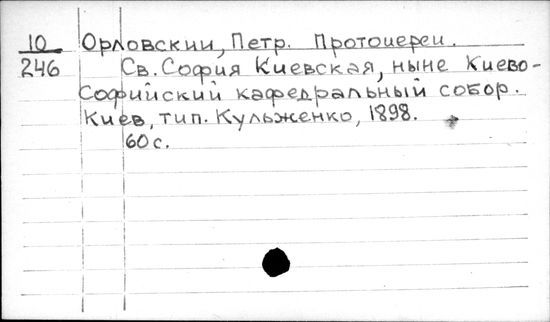 10 Орловскии, Петр. Протоиереи.
246 Св. София Киевская, ныне Киево-
Софийский кафедральный собор.
Киев, тип. Кульженко, 1898.
60 с.